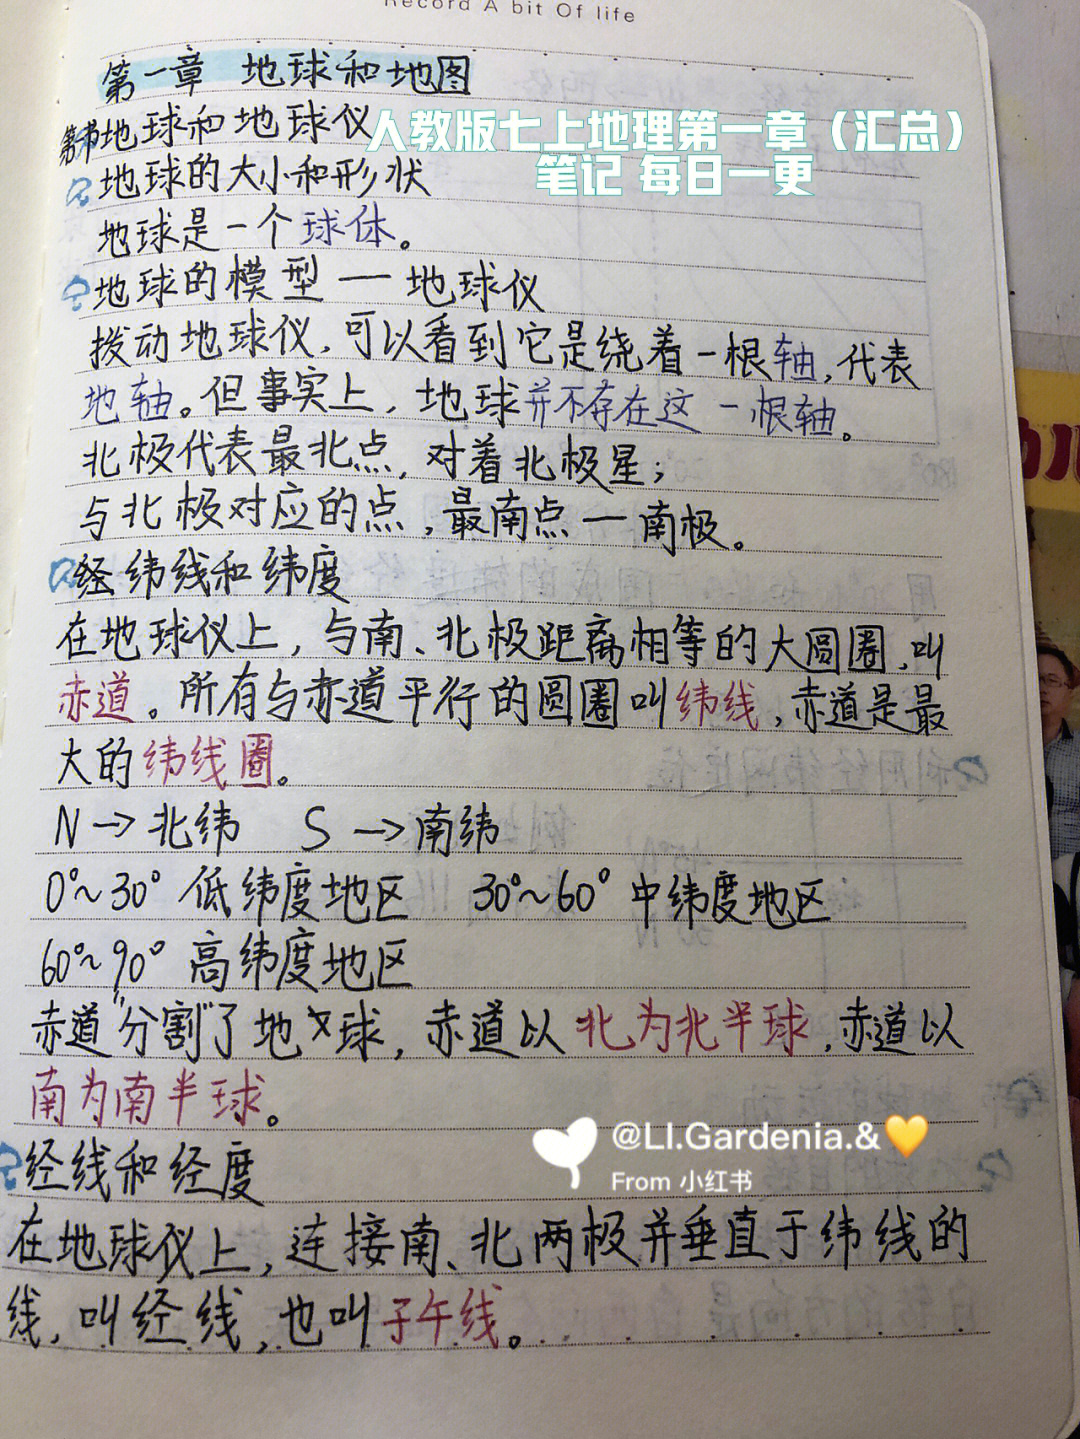 Record A bit Of life
第一章 地球和地图
第一节 地球和地球仪
人教版七上地理第一章（汇总）
笔记 每日一更
地球的大小和形状
地球是一个球体。
地球的模型 — 地球仪
拨动地球仪，可以看到它是绕着一根轴，代表
地轴。但事实上，地球并不存在这一根轴。
北极代表最北点，对着北极星；
与北极对应的点，最南点 — 南极。
经纬线和纬度
在地球仪上，与南、北极距离相等的大圆圈，叫
赤道。所有与赤道平行的圆圈叫纬线，赤道是最
大的纬线圈。
N → 北纬 S → 南纬
0°~30° 低纬度地区 30°~60° 中纬度地区
60°~90° 高纬度地区
赤道“分割”了地球，赤道以北为北半球，赤道以
南为南半球。
@LI.Gardenia.&💛
From 小红书
经线和经度
在地球仪上，连接南、北两极并垂直于纬线的
线，叫经线，也叫子午线。